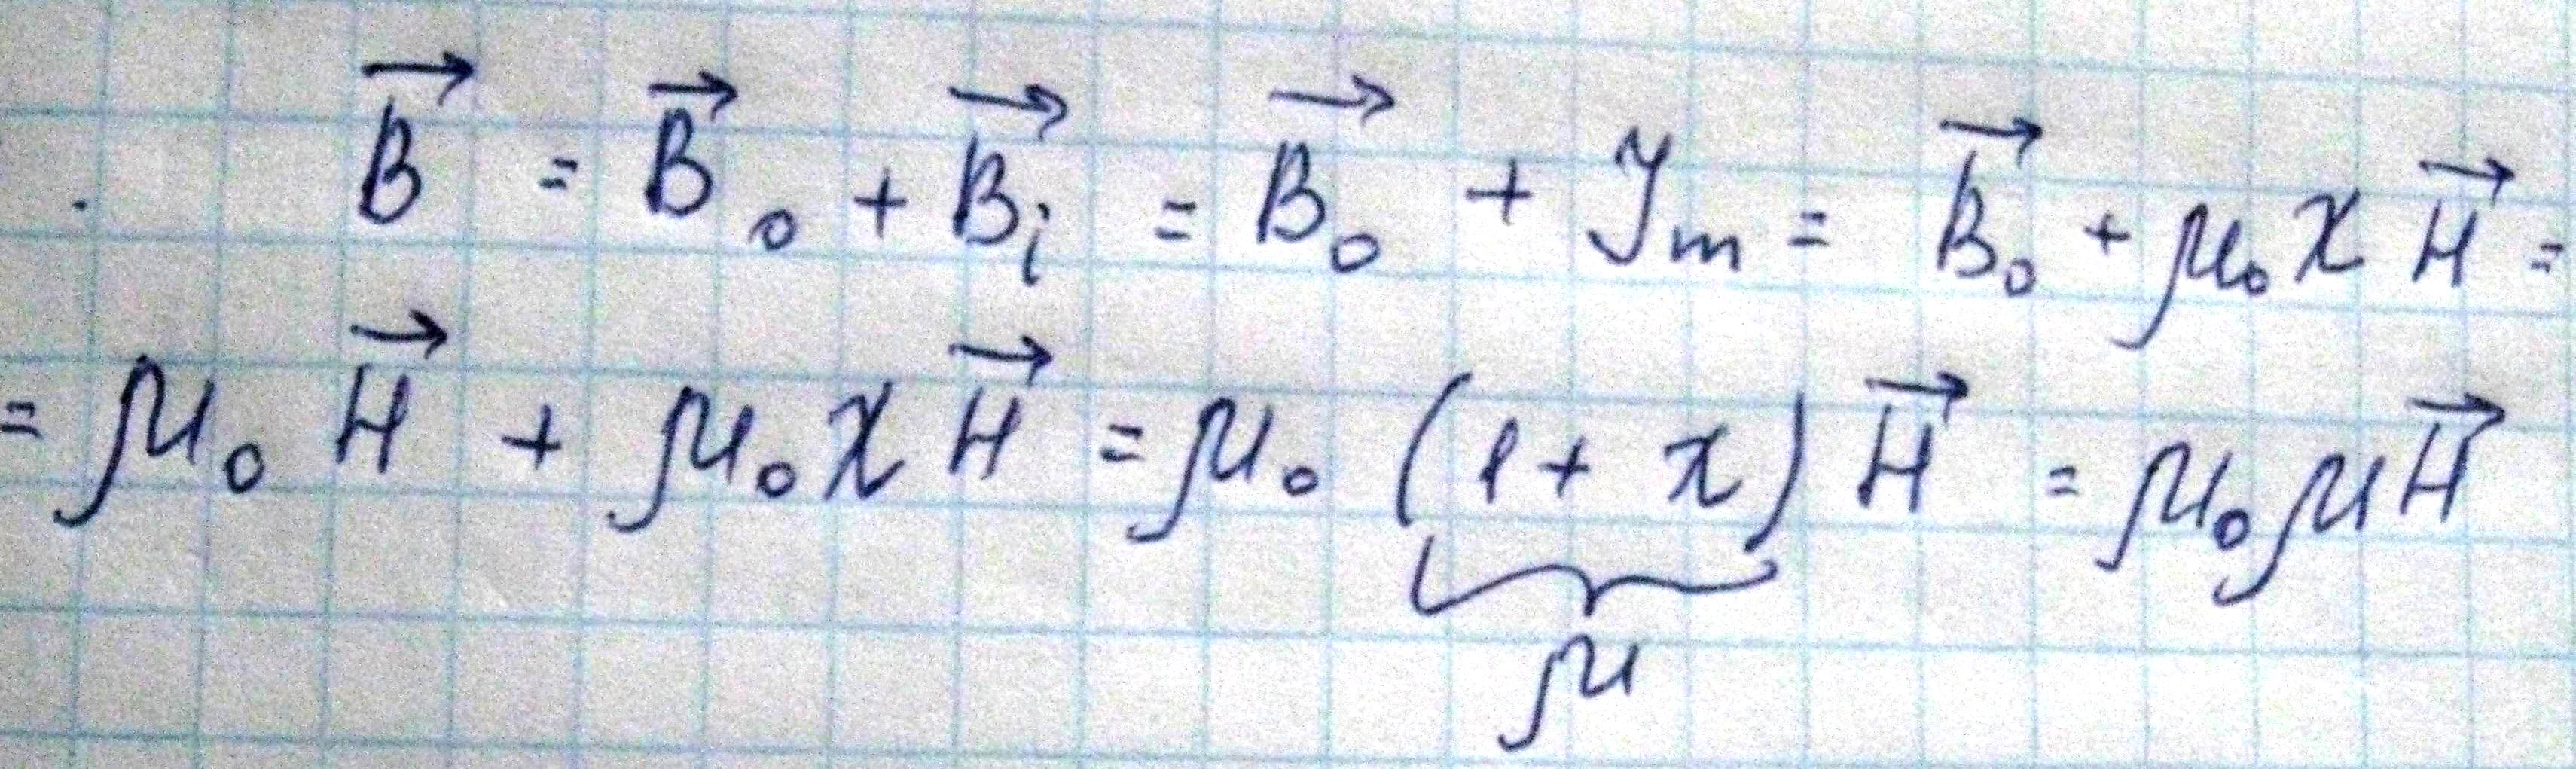 $\vec{B} = \vec{B}_0 + \vec{B}_i = \vec{B}_0 + J_m = \vec{B}_0 + \mu_0 \chi \vec{H} =$
$= \mu_0 \vec{H} + \mu_0 \chi \vec{H} = \mu_0 \underbrace{(1 + \chi)}_{\mu} \vec{H} = \mu_0 \mu \vec{H}$